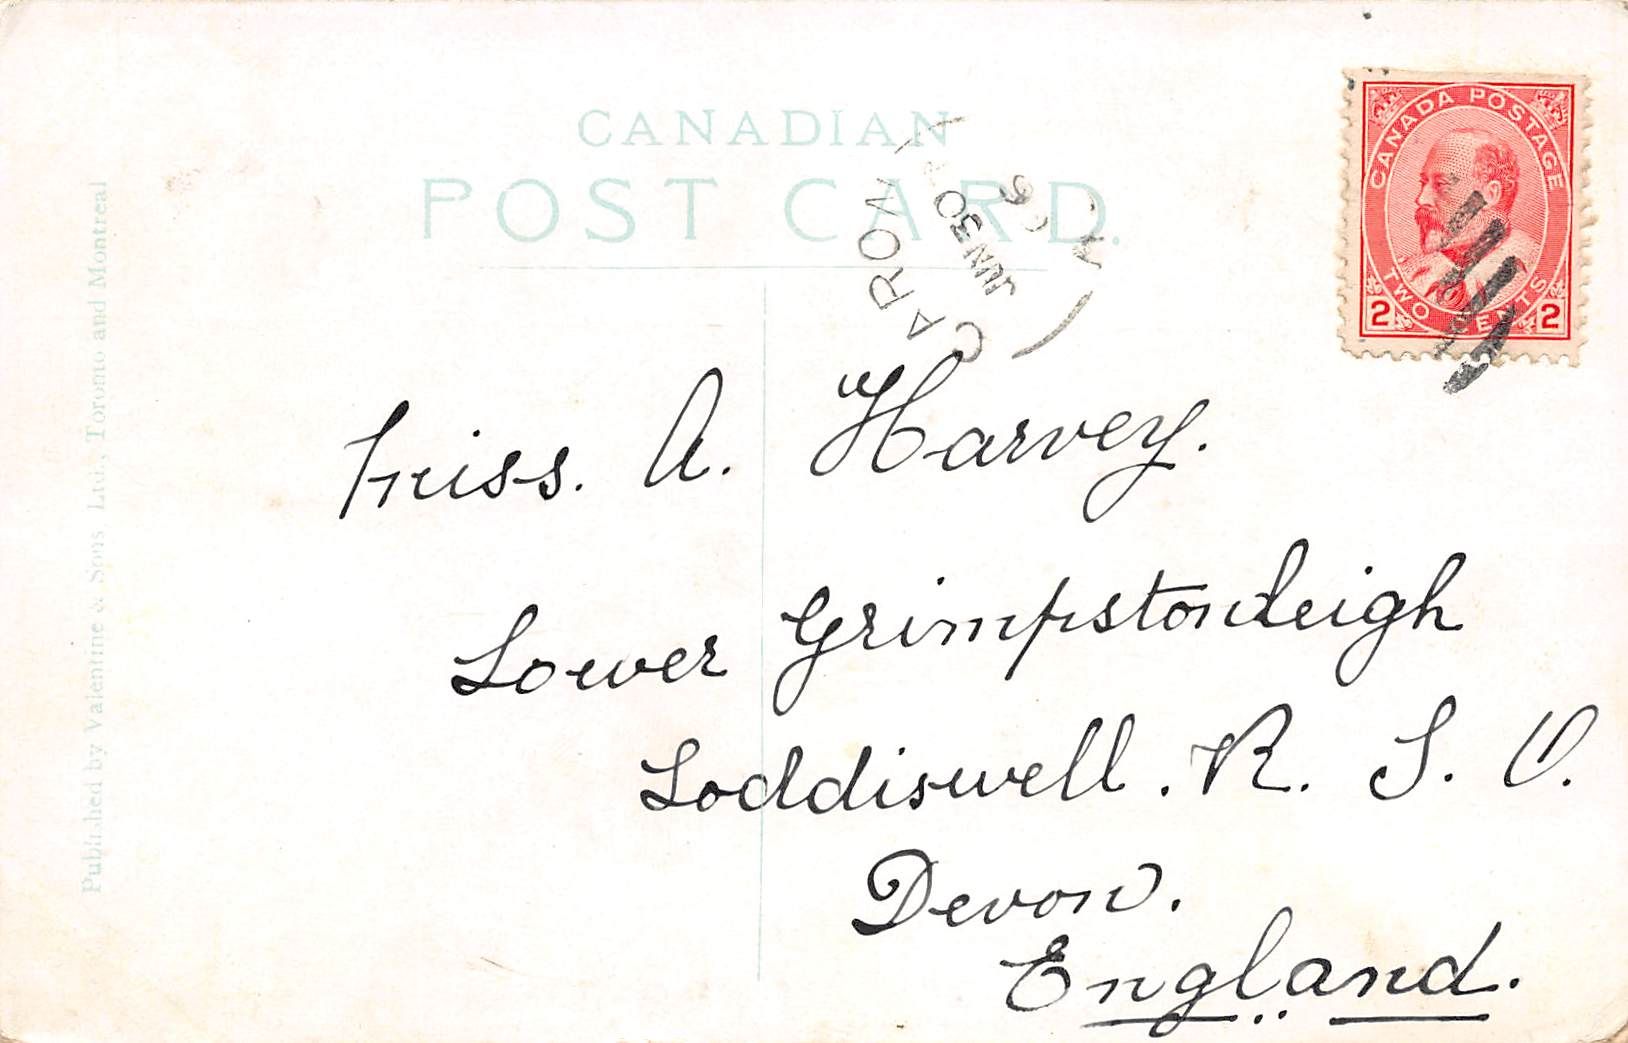 CANADIAN
POST CARD.
CARON
JUN 30
CANADA POSTAGE
TWO CENTS
2 2
Published by Valentine & Sons Ltd., Toronto and Montreal
Miss. A. Harvey.
Lower Grimpstonleigh
Loddiswell. R. S. O.
Devon.
England.